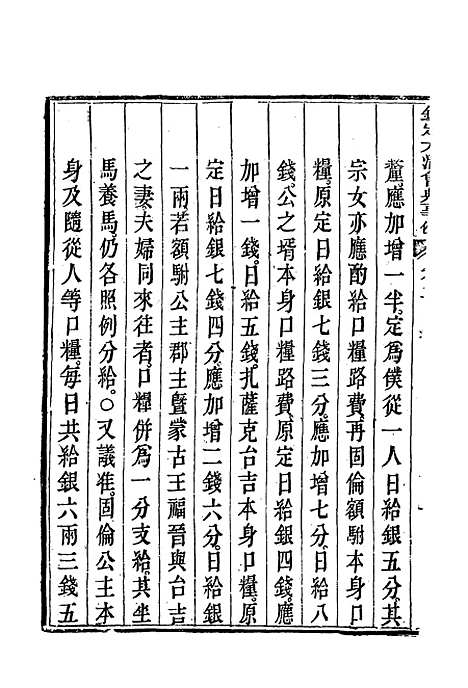 釐應加增一半。定爲僕從一人日給銀五分。其
宗女亦應酌給口糧路費。再固倫額駙本身口
糧。原定日給銀七錢三分。應加增七分。日給八
錢。公之壻本身口糧路費。原定日給銀四錢。應
加增一錢。日給五錢。扎薩克台吉本身口糧。原
定日給銀七錢四分。應加增二錢六分。日給銀
一兩。若額駙公主郡主暨蒙古王福晉與台吉
之妻夫婦同來往者。口糧併爲一分支給。其坐
馬養馬。仍各照例分給。○又議准。固倫公主本
身及隨從人等口糧。每日共給銀六兩三錢五